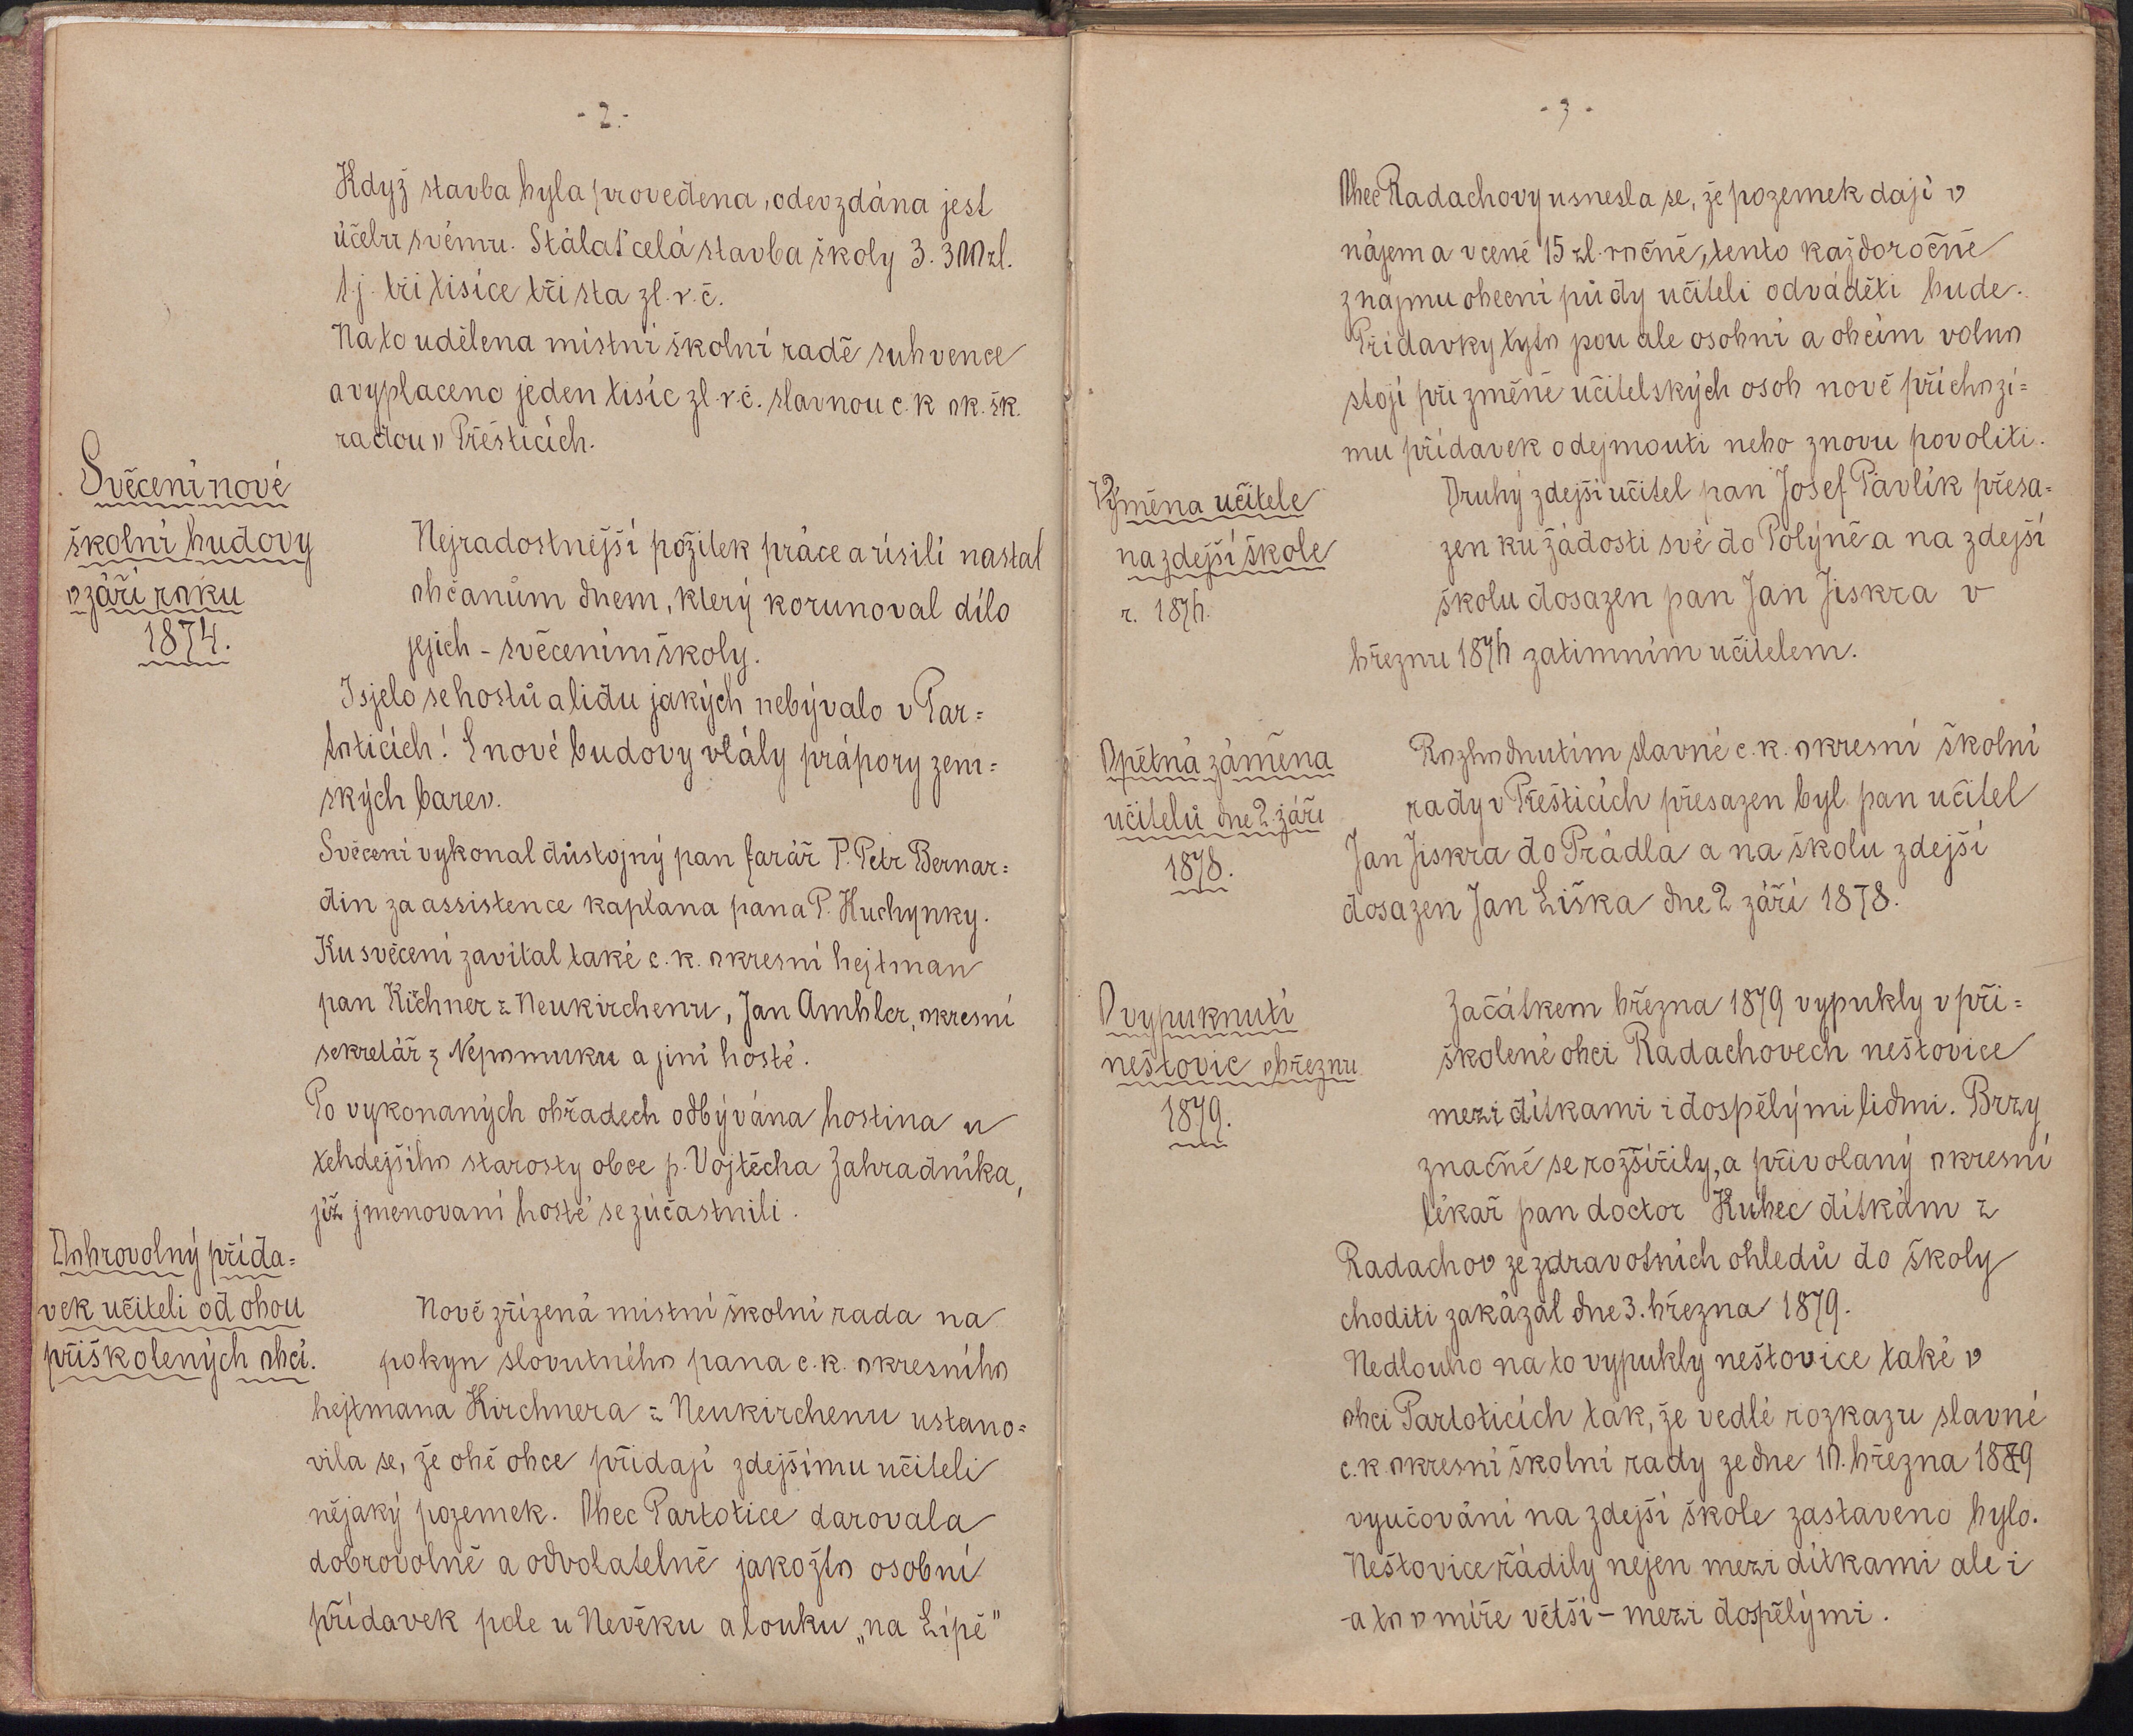 - 2. -
Když stavba byla provedena, odevzdána jest
účelu svému. Stálať celá stavba školy 3.300 zl.
t.j. tři tisíce tři sta zl. r. č.
Na to udělena místní školní radě subvence
a vyplaceno jeden tisíc zl. r. č. slavnou c. k. ok. šk.
radou v Přešticích.
Svěcení nové
školní budovy
v září roku
1874.
Nejradostnější požitek práce a úsilí nastal
občanům dnem, který korunoval dílo
jejich - svěcením školy.
Isjelo se hostů a lidu jakých nebývalo v Par=
toticích! S nové budovy vlály prápory zem=
ských barev.
Svěcení vykonal důstojný pan farář P. Petr Bernar=
din za assistence kaplana pana P. Kuchynky.
Ku svěcení zavítal také c. k. okresní hejtman
pan Kičhner z Neukirchenu, Jan Ambler, okresní
sekretář z Nepomuku a jiní hosté.
Po vykonaných obřadech odbývána hostina u
tehdejšího starosty obce p. Vojtěcha Zahradníka,
již jmenovaní hosté se zúčastnili.
Dobrovolný přída=
vek učiteli od obou
přiškolených obcí.
Nově zřízená místní školní rada na
pokyn slovutného pana c. k. okresního
hejtmana Kirchnera z Neukirchenu ustano=
vila se, že obě obce přidají zdejšímu učiteli
nějaký pozemek. Obec Partotice darovala
dobrovolně a odvolatelně jakožto osobní
přídavek pole u Nevěku a louku „na Lípě"
- 3 -
Obec Radachovy usnesla se, že pozemek dají v
nájem a v ceně 15 zl. ročně, tento každoročně
z nájmu obecní půdy učiteli odváděti bude.
Přídavky tyto pou ale osobní a obcím volno
stojí při změně učitelských osob nově příchozí=
mu přídavek odejmouti nebo znovu povoliti.
Výměna učitele
na zdejší škole
r. 1876.
Druhý zdejší učitel pan Josef Pavlík přesa=
zen ku žádosti své do Polýně a na zdejší
školu dosazen pan Jan Jiskra v
březnu 1876 zatímním učitelem.
Opětná záměna
učitelů dne 2. září
1878.
Rozhodnutím slavné c. k. okresní školní
rady v Přešticích přesazen byl pan učitel
Jan Jiskra do Prádla a na školu zdejší
dosazen Jan Liška dne 2 září 1878.
O vypuknutí
neštovic v březnu
1879.
Začátkem března 1879 vypukly v při=
školené obci Radachovech neštovice
mezi dítkami i dospělými lidmi. Brzy
značně se rozšířily, a přivolaný okresní
lékař pan doctor Kubec dítkám z
Radachov ze zdravotních ohledů do školy
choditi zakázal dne 3. března 1879.
Nedlouho na to vypukly neštovice také v
obci Partoticích tak, že vedlé rozkazu slavné
c. k. okresní školní rady ze dne 10. března 1879
vyučování na zdejší škole zastaveno bylo.
Neštovice řádily nejen mezi dítkami ale i
- a to v míře větší - mezi dospělými.